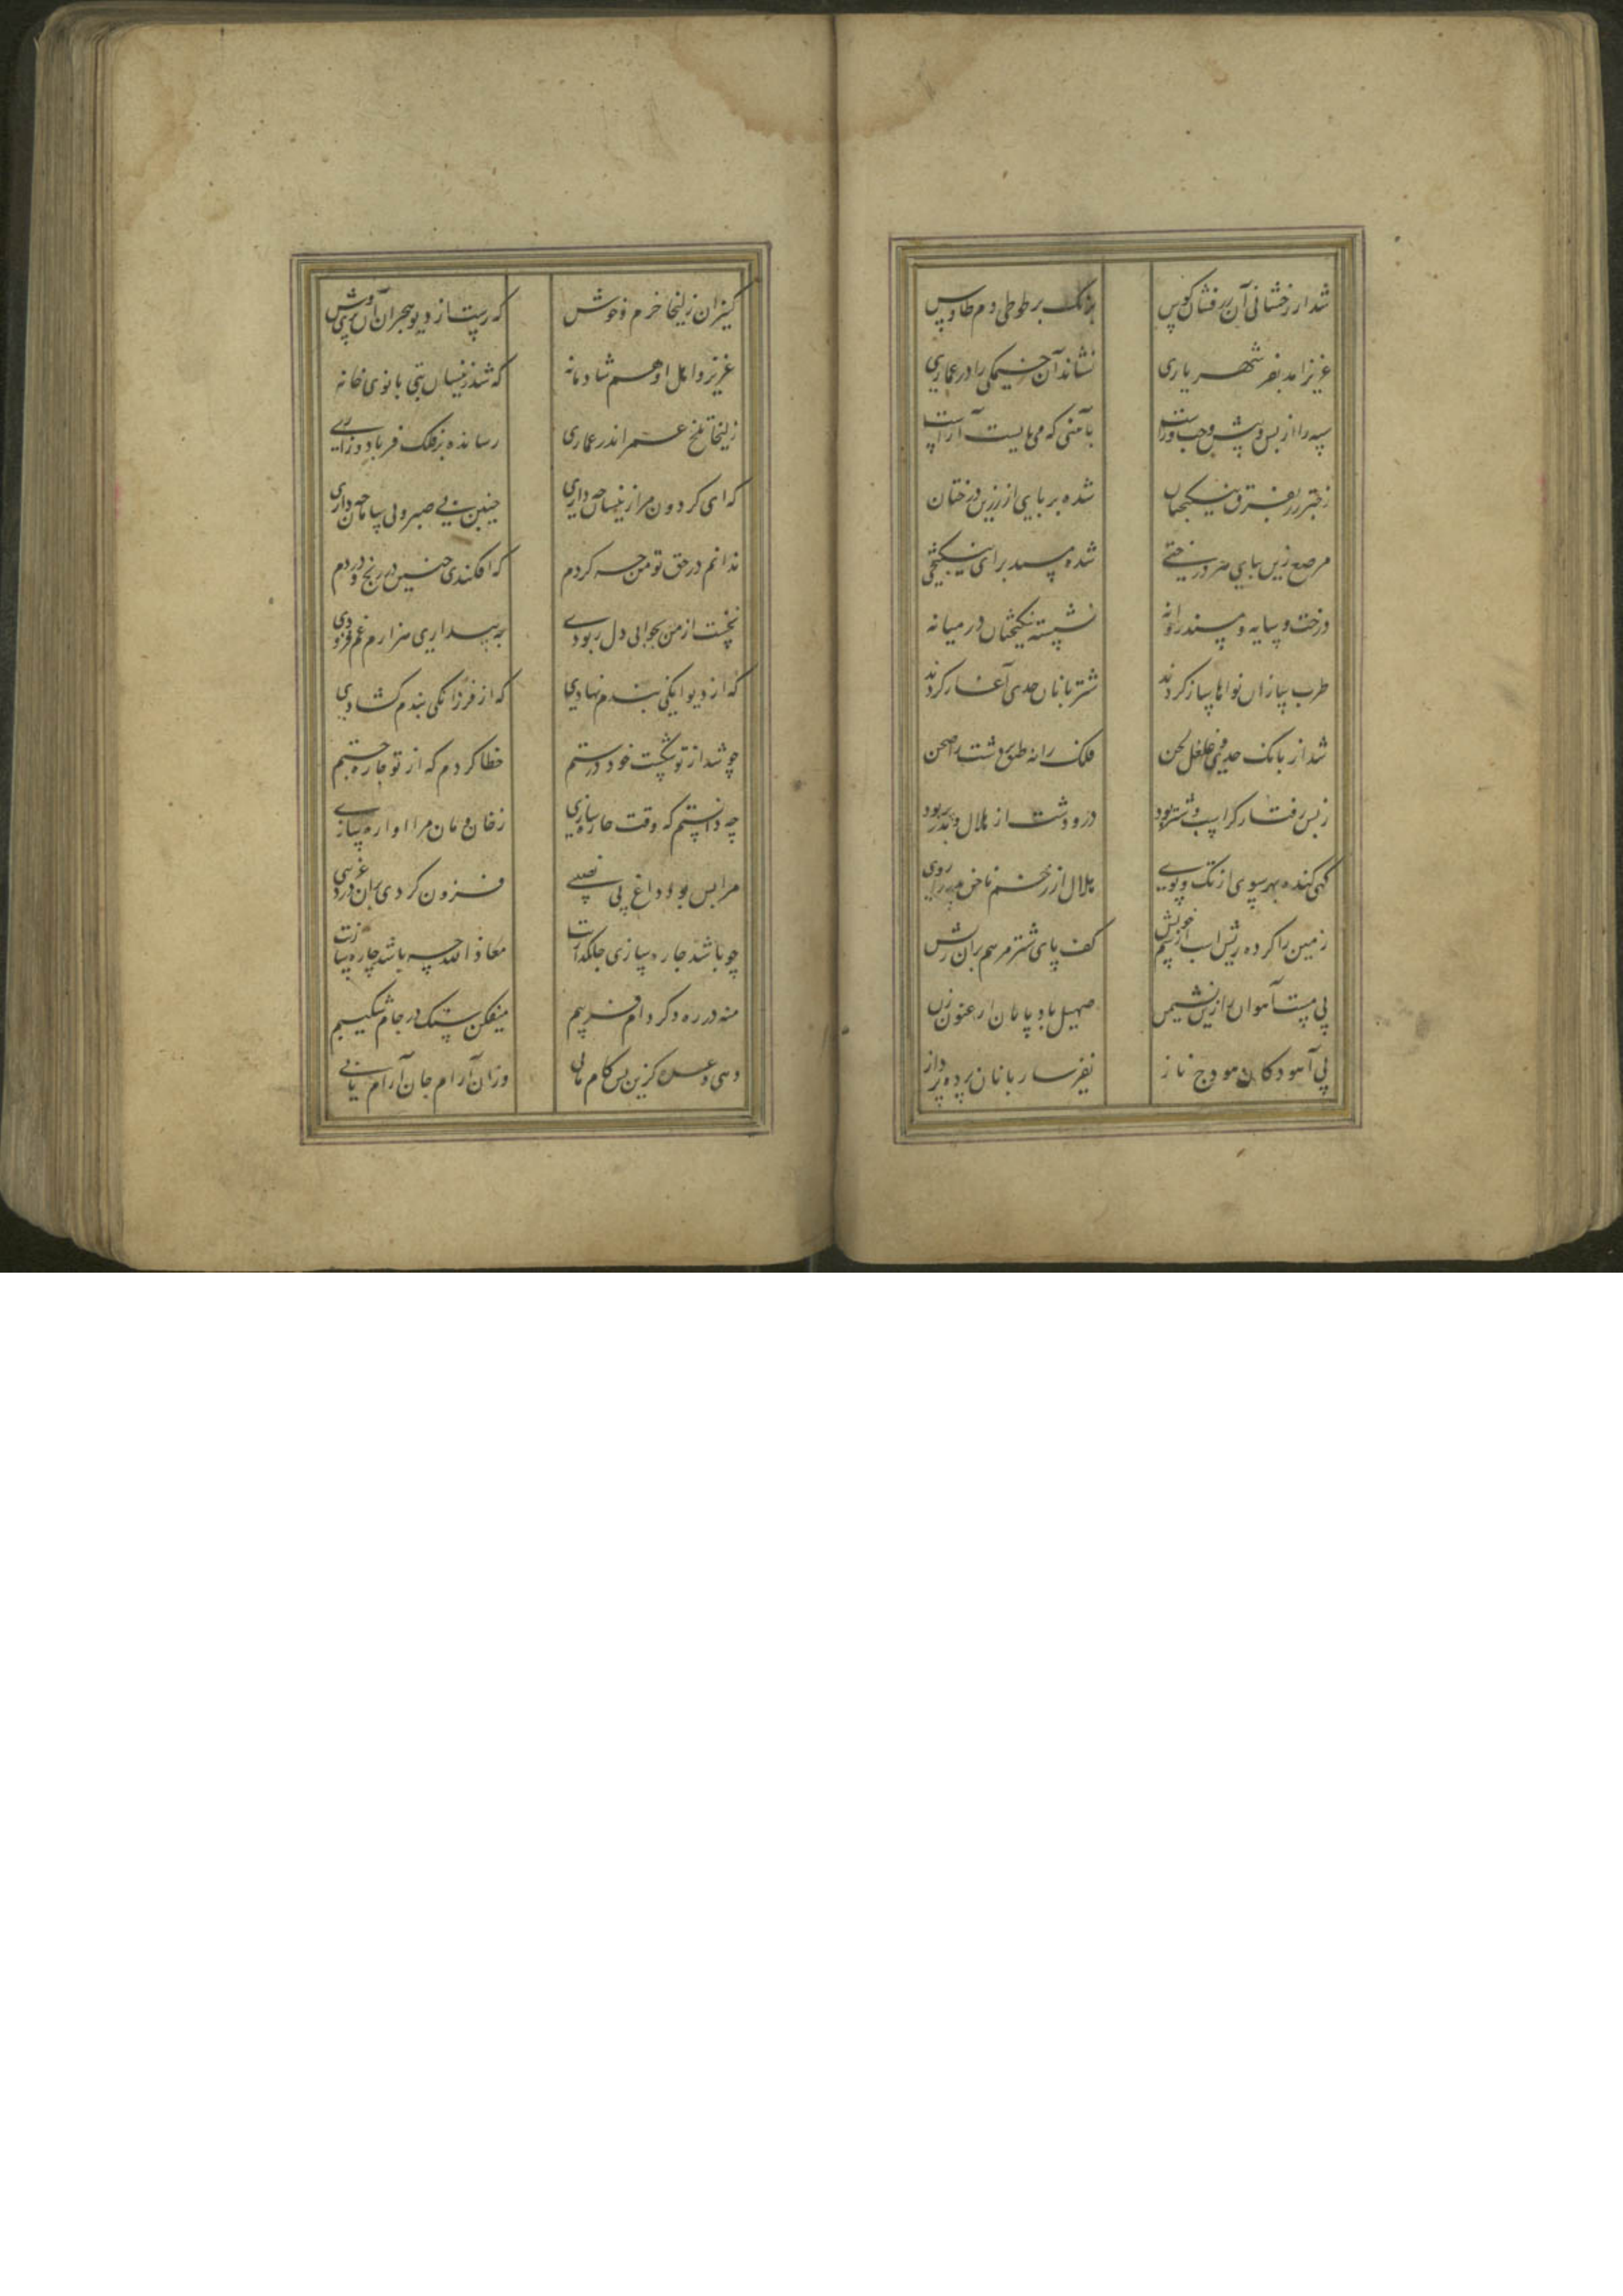 شد از رخشانی آن زرفشان کوس هزانک بر طوطی دم طاوس
عزیز آمد بفر شهریاری نشاند آن خیمگی را در عماری
سپه را از پس و پیش و چپ و راست بآئینی که می بایست آراست
ز چتر زر بفرق نیکبختان شده بر پای از زرین درختان
مرصع زین بپای هر درختی شده مسند برای نیکبختی
درخت و سایه و مسند روانه نشسته نیکبختان در میانه
طرب سازان نواها ساز کردند شتربانان حدی آغاز کردند
شد از بانک حدی غلغل لحن فلک را نه طبق دشت را صحن
ز بس رفتار کز اسب و شتر بود در و دشت از هلال و بدر پر بود
کهی کنده بهر سوی از تک و پوی هلال از زخم ناخن بدر را روی
زمین را کرده ریش اسب از سم خویش کف پای شتر مرهم بران ریش
پی مست آهوان نشیمن صهیل باد پایان ارغنون زن
پی آسودکان هودج ناز نفیر ساربانان پرده پرداز
کنیزان زلیخا خرم و خوش که رست از دیو هجران آن پری وش
عزیز و اهل او هم شادمانه که شد زینسان بتی بانوی خانه
زلیخا تلخ عمر اندر عماری رسانده بر فلک فریاد و زاری
که ای کردون مرا زینسان چه داری چنین بی صبر و بی سامان چه داری
ندانم در حق تو من چه کردم که افکندی چنین در رنج و دردم
نخست از من بخوابی دل ربودی به بیداری هزارم غم فزودی
که از دیوانکی بندم نهادی که از فرزانکی بندم کشادی
چو شد از تو شکست خود درستم خطا کردم که از تو چاره جستم
چه دانستم که وقت چاره سازی ز خان و مان مرا اواره سازی
مرا بس بود داغ بی نصیبی فزون کردی بران درد غریبی
چو باشد چاره سازی جانکدازت معاذ الله چه باشد چاره سازت
منه در ره دکر دام فریبم میفکن سنک در جام شکیبم
دهی وعده کزین پس کام یابی وزان آرام جان آرام یابی